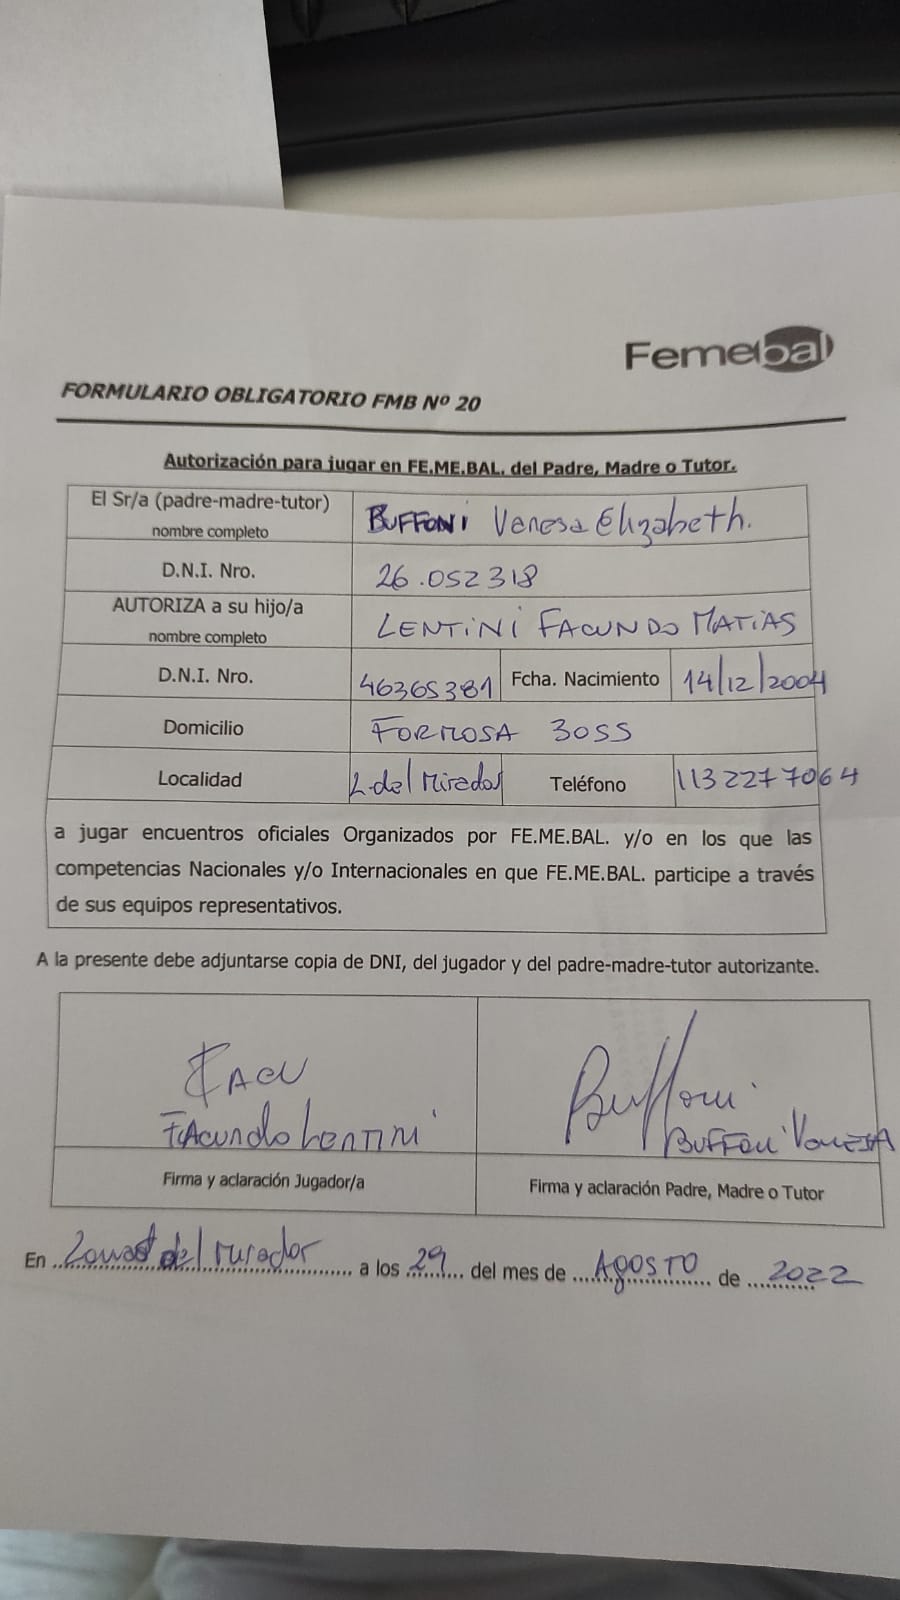 Femebal
FORMULARIO OBLIGATORIO FMB Nº 20
Autorización para jugar en FE.ME.BAL. del Padre, Madre o Tutor.
El Sr/a (padre-madre-tutor) nombre completo BUFFONI Vanesa Elizabeth.
D.N.I. Nro. 26.052318
AUTORIZA a su hijo/a nombre completo LENTINI FACUNDO MATIAS
D.N.I. Nro. 46365381 Fcha. Nacimiento 14/12/2004
Domicilio FORMOSA 3055
Localidad L.del Mirador Teléfono 1132277064
a jugar encuentros oficiales Organizados por FE.ME.BAL. y/o en los que las
competencias Nacionales y/o Internacionales en que FE.ME.BAL. participe a través
de sus equipos representativos.
A la presente debe adjuntarse copia de DNI, del jugador y del padre-madre-tutor autorizante.
FACU
FACUNDO LENTINI
Buffoni
BUFFONI VANESA
Firma y aclaración Jugador/a
Firma y aclaración Padre, Madre o Tutor
En Lomas del mirador a los 29 del mes de AGOSTO de 2022